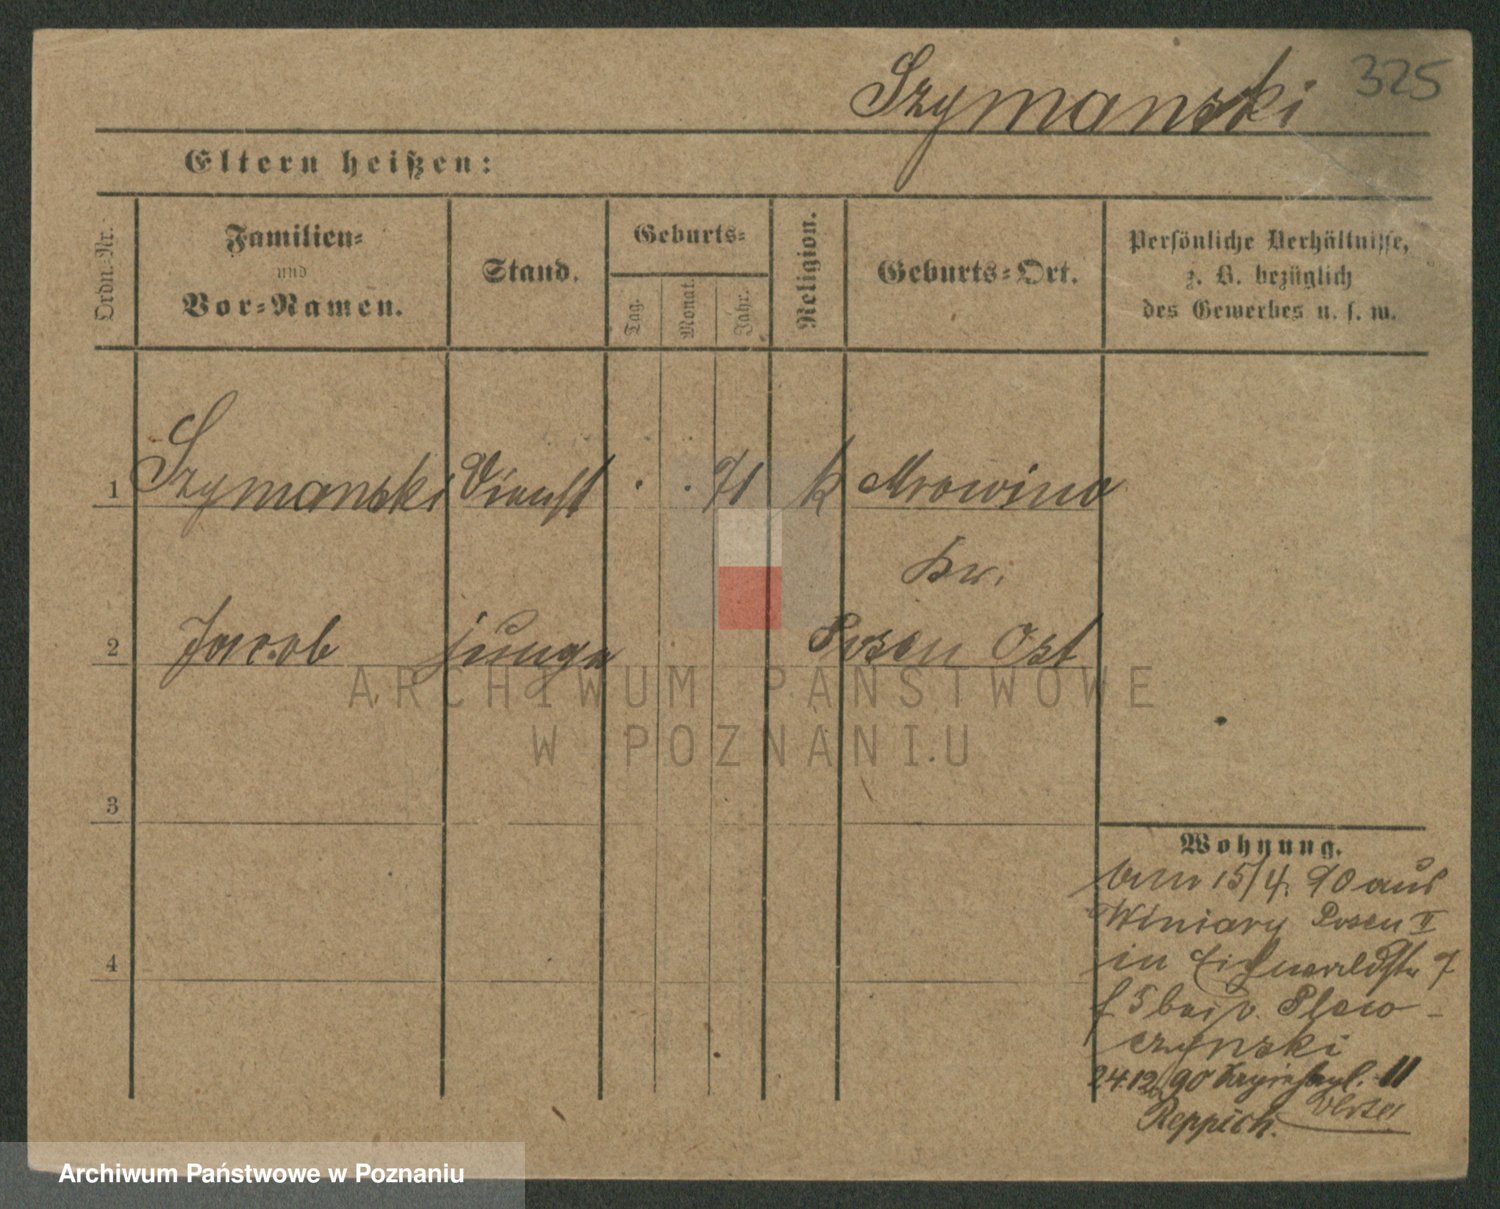 Szymanski 325
Eltern heißen:
Ordn.-Nr.
Familien-
und
Vor-Namen.
Stand.
Geburts-
Tag.
Monat.
Jahr.
Religion.
Geburts-Ort.
Persönliche Verhältnisse,
z. B. bezüglich
des Gewerbes u. s. w.
1 Szymanski Dienst . . 71 k Mrowino
Kr.
2 Jacob junge Posen Ost
ARCHIWUM PAŃSTWOWE
W POZNANIU
3
4
Wohnung.
15/4. 90 aus
Winiary Posen II
in 7
bei v.
24.12.90 11
Reppich.
Archiwum Państwowe w Poznaniu